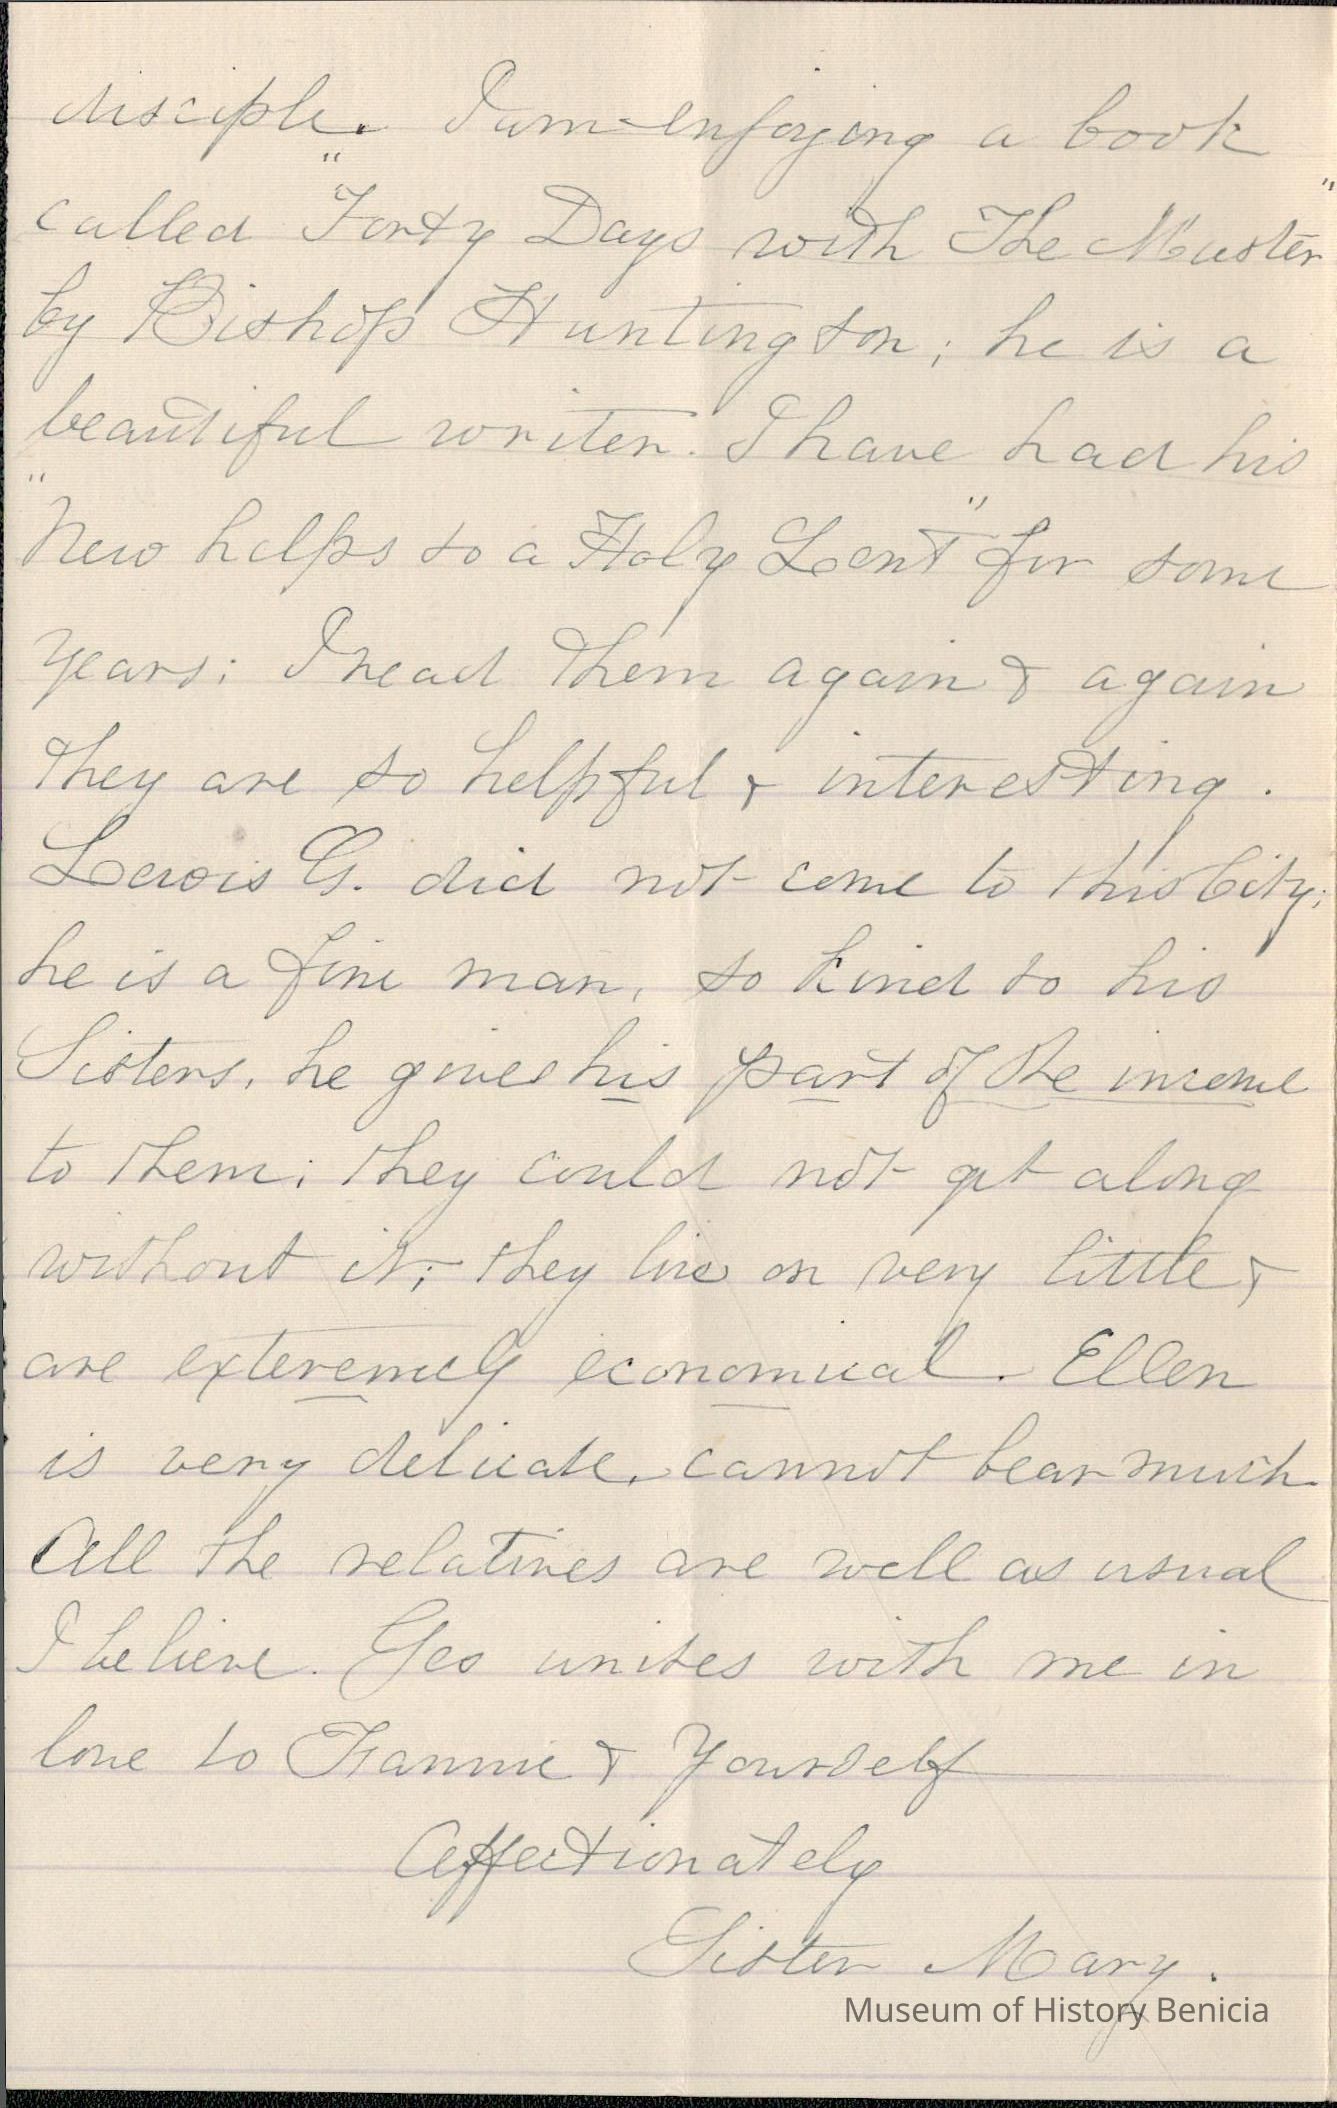 disciple. I am enjoying a book
called "Forty Days with The Master"
by Bishop Huntington; he is a
beautiful writer. I have had his
"New helps to a Holy Lent" for some
years; I read them again & again
they are so helpful & interesting.
Lewis G. did not come to this City;
he is a fine man, so kind to his
Sisters, he gives his part of the income
to them; they could not get along
without it; they live on very little &
are exteremely economical. Ellen
is very delicate, cannot bear much.
All the relatives are well as usual
I believe. Geo unites with me in
love to Fannie & Yourself
Affectionately
Sister Mary.
Museum of History Benicia